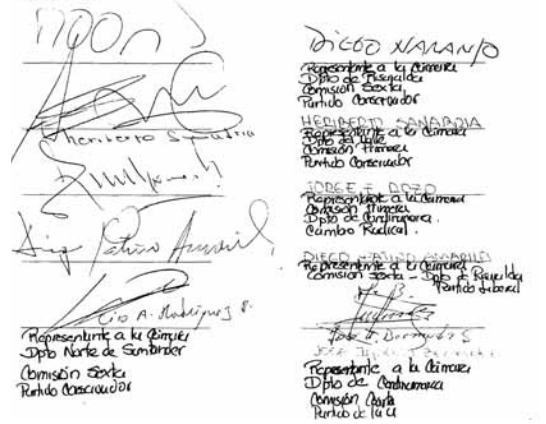 Heriberto Sanabria
Diego Patiño Amariles
Ciro A. Rodríguez P.
Representante a la Cámara
Dpto Norte de Santander
Comisión Sexta
Partido Conservador
DIEGO NARANJO
Representante a la Cámara
Dpto de Risaralda
Comisión Sexta
Partido Conservador
HERIBERTO SANABRIA
Representante a la Cámara
Dpto del Valle
Comisión Primera
Partido Conservador
JORGE E. ROZO
Representante a la Cámara
Comisión Primera
Dpto de Cundinamarca.
Cambio Radical.
DIEGO PATIÑO AMARILES
Representante a la Cámara
Comisión Sexta - Dpto de Risaralda
Partido Liberal
Jose I. Bermudez S
Representante a la Cámara
Dpto de Cundinamarca
Comisión Cuarta
Partido de la U